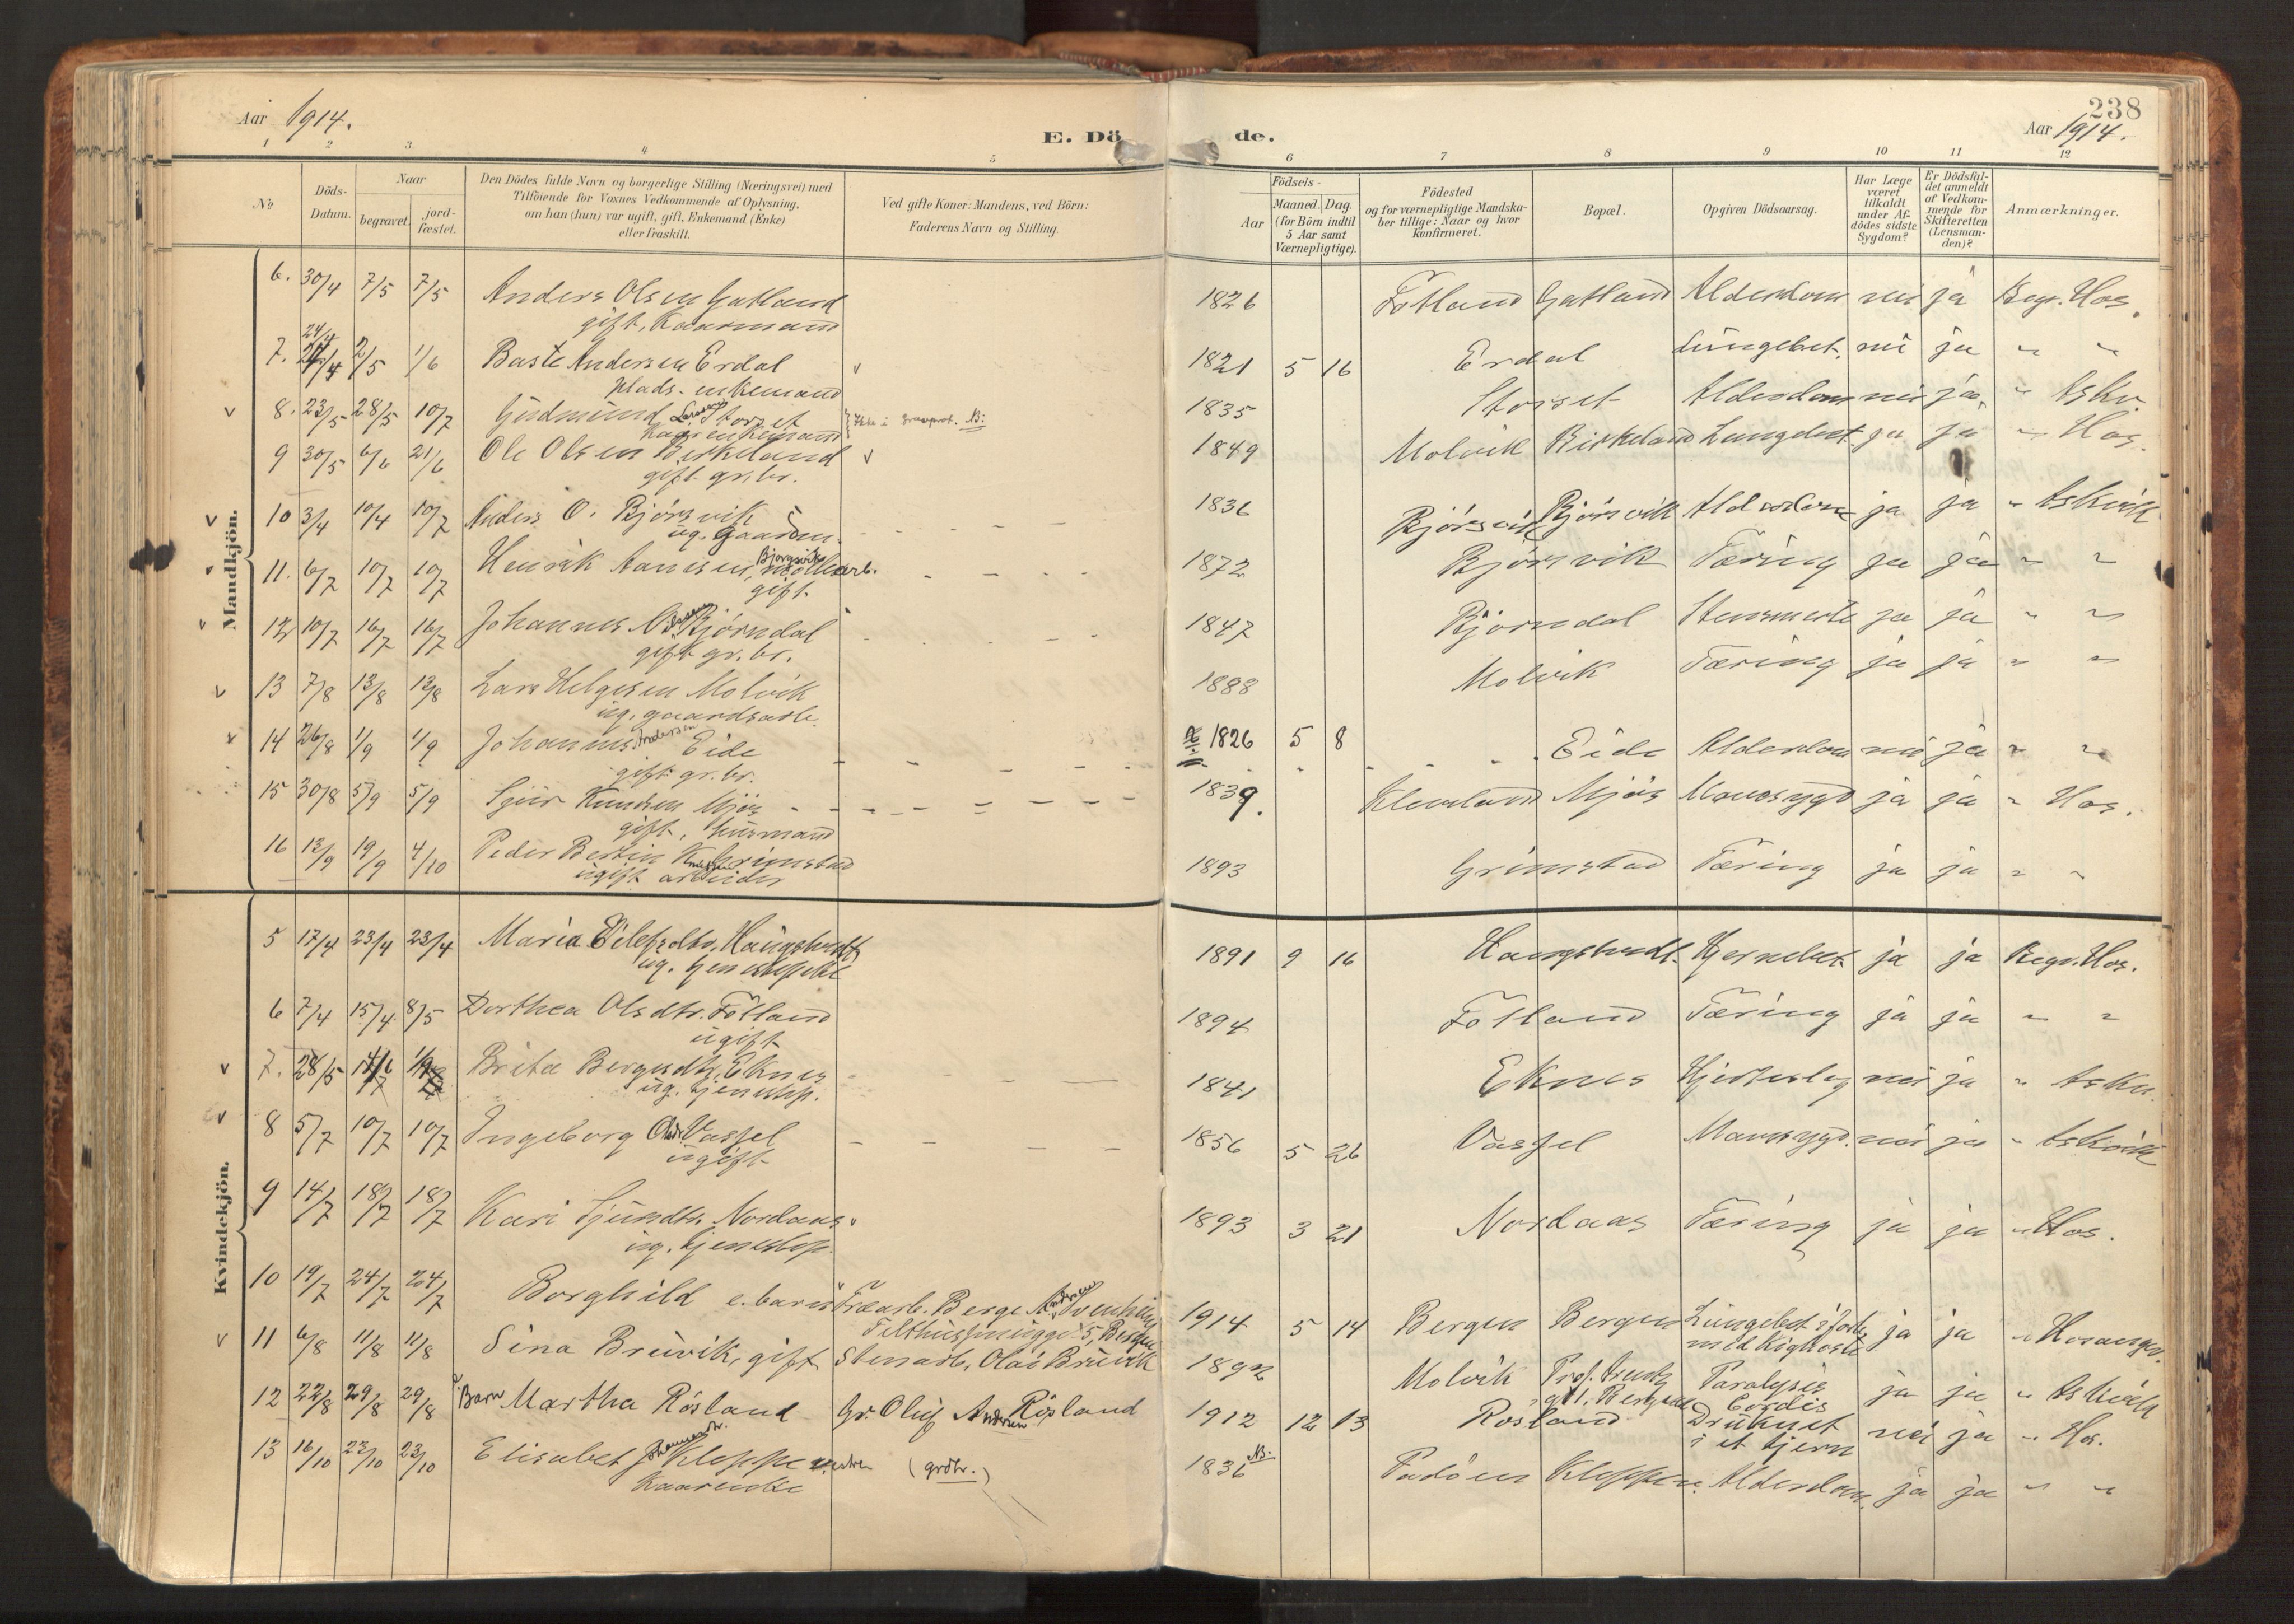 Aar 1914.
E. Dö
de.
238
Aar 1914.
1 2 3. 4 5 6 7 8 9 10 11 12
No
Döds-
Datum.
Naar
begravet.
jord-
fæstet.
Den Dödes fulde Navn og borgerlige Stilling (Næringsvei) med
Tilföiende for Voxnes Vedkommende af Oplysning,
om han (hun) var ugift, gift, Enkemand (Enke)
eller fraskilt.
Ved gifte Koner: Mandens, ved Börn:
Faderens Navn og Stilling.
Födsels-
Aar
Maaned. Dag.
(for Börn indtil
5 Aar samt
Værnepligtige).
Födested
og for værnepligtige Mandska-
ber tillige: Naar og hvor
konfirmeret.
Bopæl.
Opgiven Dödsaarsag.
Har Læge
været
tilkaldt
under Af-
dödes sidste
Sygdom?
Er Dödsfal-
det anmeldt
af Vedkom-
mende for
Skifteretten
(Lensman-
den)?
Anmærkninger.
Mandkjön.
6. 30/4 7/5 7/5 Anders Olsen Gatland 1826 Fotland Gatland Alderdom nei ja Begr. Hos.
gift, Kaarmand
24/4
7. 2/5 1/6 Baste Andersen Erdal v 1821 5 16 Erdal Lungebet. nei ja " "
Plads-enkemand
v 8. 23/5 28/5 10/7 Gudmund Larssen Storset Ikke i Gravprot. NB: 1835 Storset Alderdom nei ja " Askv.
Kaarenkemand
9 30/5 6/6 21/6 Ole Olsen Birkeland v 1849 Molvik Birkeland Lungebet ja ja " Hos.
gift gr.br.
v 10 3/4 10/4 10/7 Anders O. Björsvik 1836 Björsvik Björsvik Alderdom ja ja " Askvik
ug. gaardm.
v 11. 6/7 10/7 10/7 Henrik Bjorsvik, möllearb. 1872 Björsvik Tæring ja ja " "
gift
v 12 10/7 16/7 16/7 Johannes Björndal 1847 Björndal ja ja " "
gift gr. br.
v 13 7/8 13/8 13/8 Lars Helgesen Molvik 1888 Molvik Tæring ja ja " "
ug. gaardsarb.
v 14 26/8 1/9 1/9 Johannes Andersen Eide 1826 5 8 Eide Alderdom nei ja " "
gift gr. br.
15 30/8 5/9 5/9 Sjur Knudsen Mjös 1839. Kleveland Mjös Mavesygd ja ja " Hos.
gift, husmand
16 13/9 19/9 4/10 Peder Bertin K Grimstad 1893 Grimstad Tæring ja ja " "
ugift arbeider
Kvindekjön.
5 17/4 23/4 23/4 Maria Eilefsdtr. Haugstvedt 1891 9 16 Haugstvedt Hjernebet. ja ja Begr. Hos.
ug. tjenestepike
6 7/4 15/4 8/5 Dorthea Olsdtr. Fotland 1894 Fotland Tæring ja ja " "
ugift
v 7. 28/5 Brita Bergesdtr. Eknes 1841 Eknes Hjerteslag nei ja " Askv.
ug. tjenestep.
v 8 5/7 10/7 10/7 Ingeborg Olsdr. Vassel 1856 5 26 Vassel Mavesygd. nei ja " Askvik
ugift
9 14/7 18/7 18/7 Kari Sjursdtr. Nordaas 1893 3 21 Nordaas Tæring ja ja " Hos.
ug. tjenestep.
10 19/7 24/7 24/7 Borghild e. barn Træarb. Berge Andersen 1914 5 14 Bergen Bergen Lungebet. i forb. ja ja " Hosanger.
5, Bergen med Kighoste
v 11 6/8 11/8 11/8 Sina Bruvik, gift Stenarb. Olai Bruvik 1892 Molvik Paralysis ja ja " Askvik
Cordis
12 22/8 29/8 29/8 Barn Martha Rösland Gr. Oluf Andersen Rösland 1912 12 13 Rosland Druknet nei ja " Hos.
i et tjern
13 16/10 23/10 23/10 Elisabet Johannesdtr. Kleppe (grdbr.) 1836 NB. Padöen Kleppen. Alderdom. ja ja " "
Kaarenke